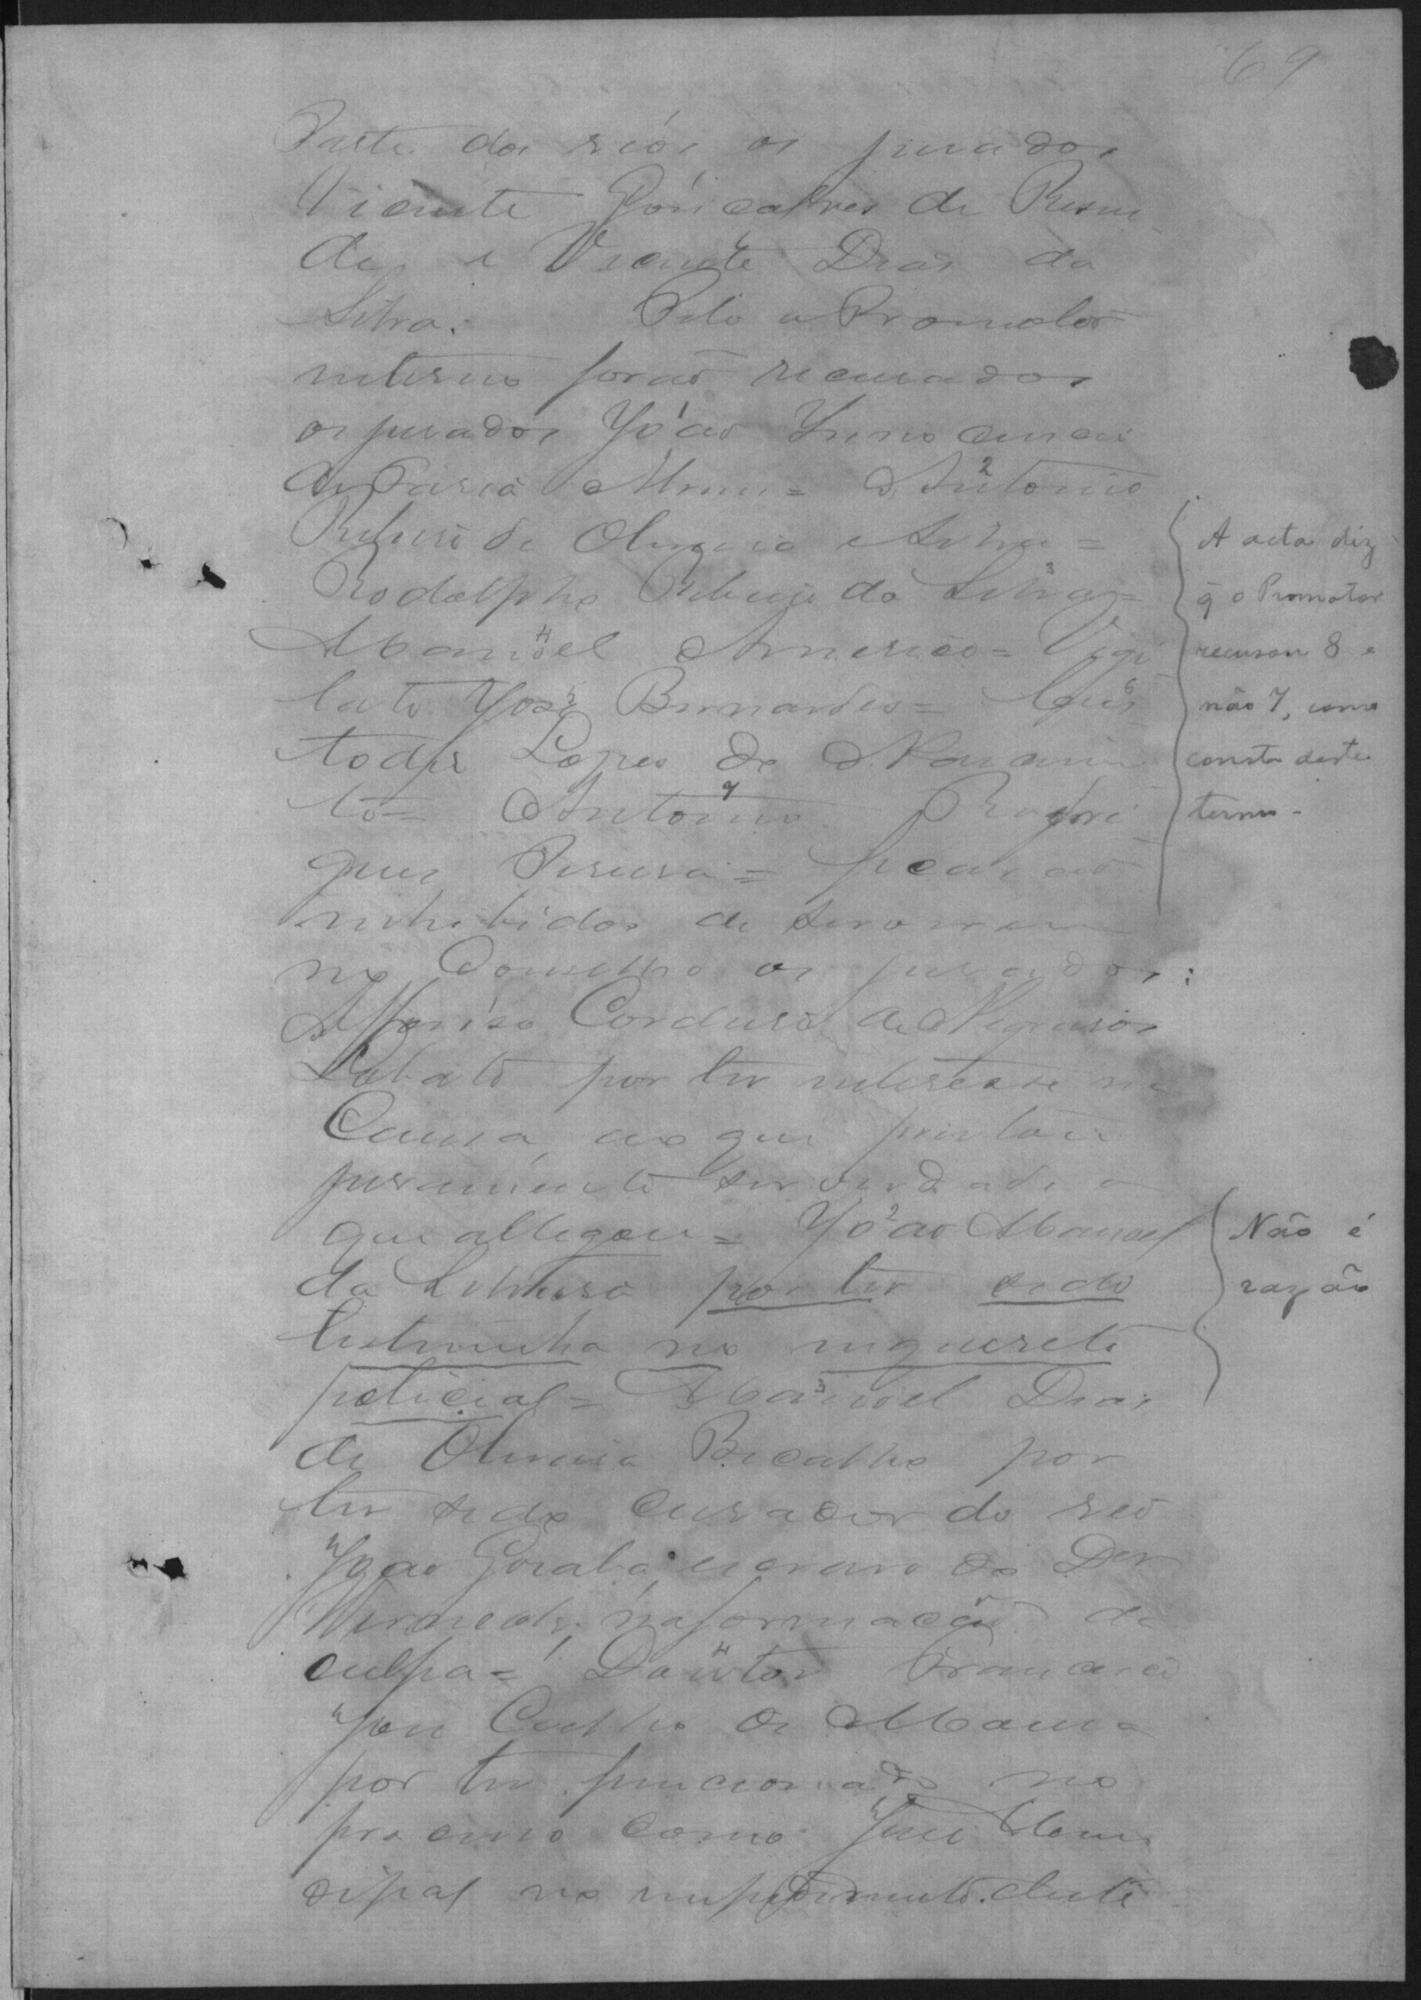 69
Parte dos reós os jurados
Vicente Gonçalves de Resen
de e Vicente Dias da
Silva. Pelo o Promotor
interino forão recusados
os jurados João Innocencio
de Faria Alvim = 2 Antonio
Ribeiro de Oliveira e Silva =
Rodolpho Ribeiro da Silva 3 =
Manoel 4 Americo = Vigi
lato José 5 Bernardes = Cus 6
todio Lopes do Nascimen
to = Antonio 7 Rodri
gues Pereira = ficarão
inhibidos de servirem
no Conselho os jurados:
Affonso Cordeiro de Negreiros
Lobato por ter interesse na
Causa, ao que prestou
juramento ser verdade o
que allegou = João 2 Manoel
da Silveira por ter sido
testimunha no inquerito
policial = Manoel 3 Dias
de Oliveira Bicalho por
ter sido curador do reó
João escravo do Dor
na formação da
culpa = Doutor 4 Francisco
José Coelho de Moura
por ter funccionado no
processo como Juiz Muni
cipal no impedimento deste
A acta diz
q̃ o Promotor
recusou 8 e
não 7, como
consta deste
termo -
Não é
razão